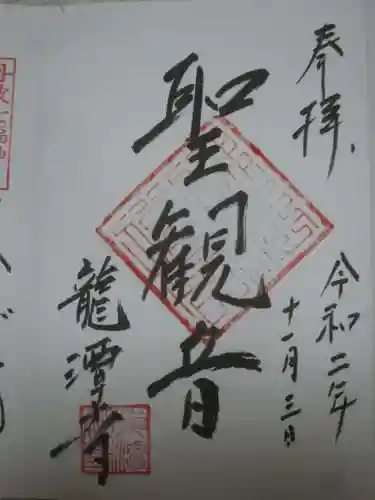 奉拝
令和二年
十一月三日
聖観音
龍潭寺